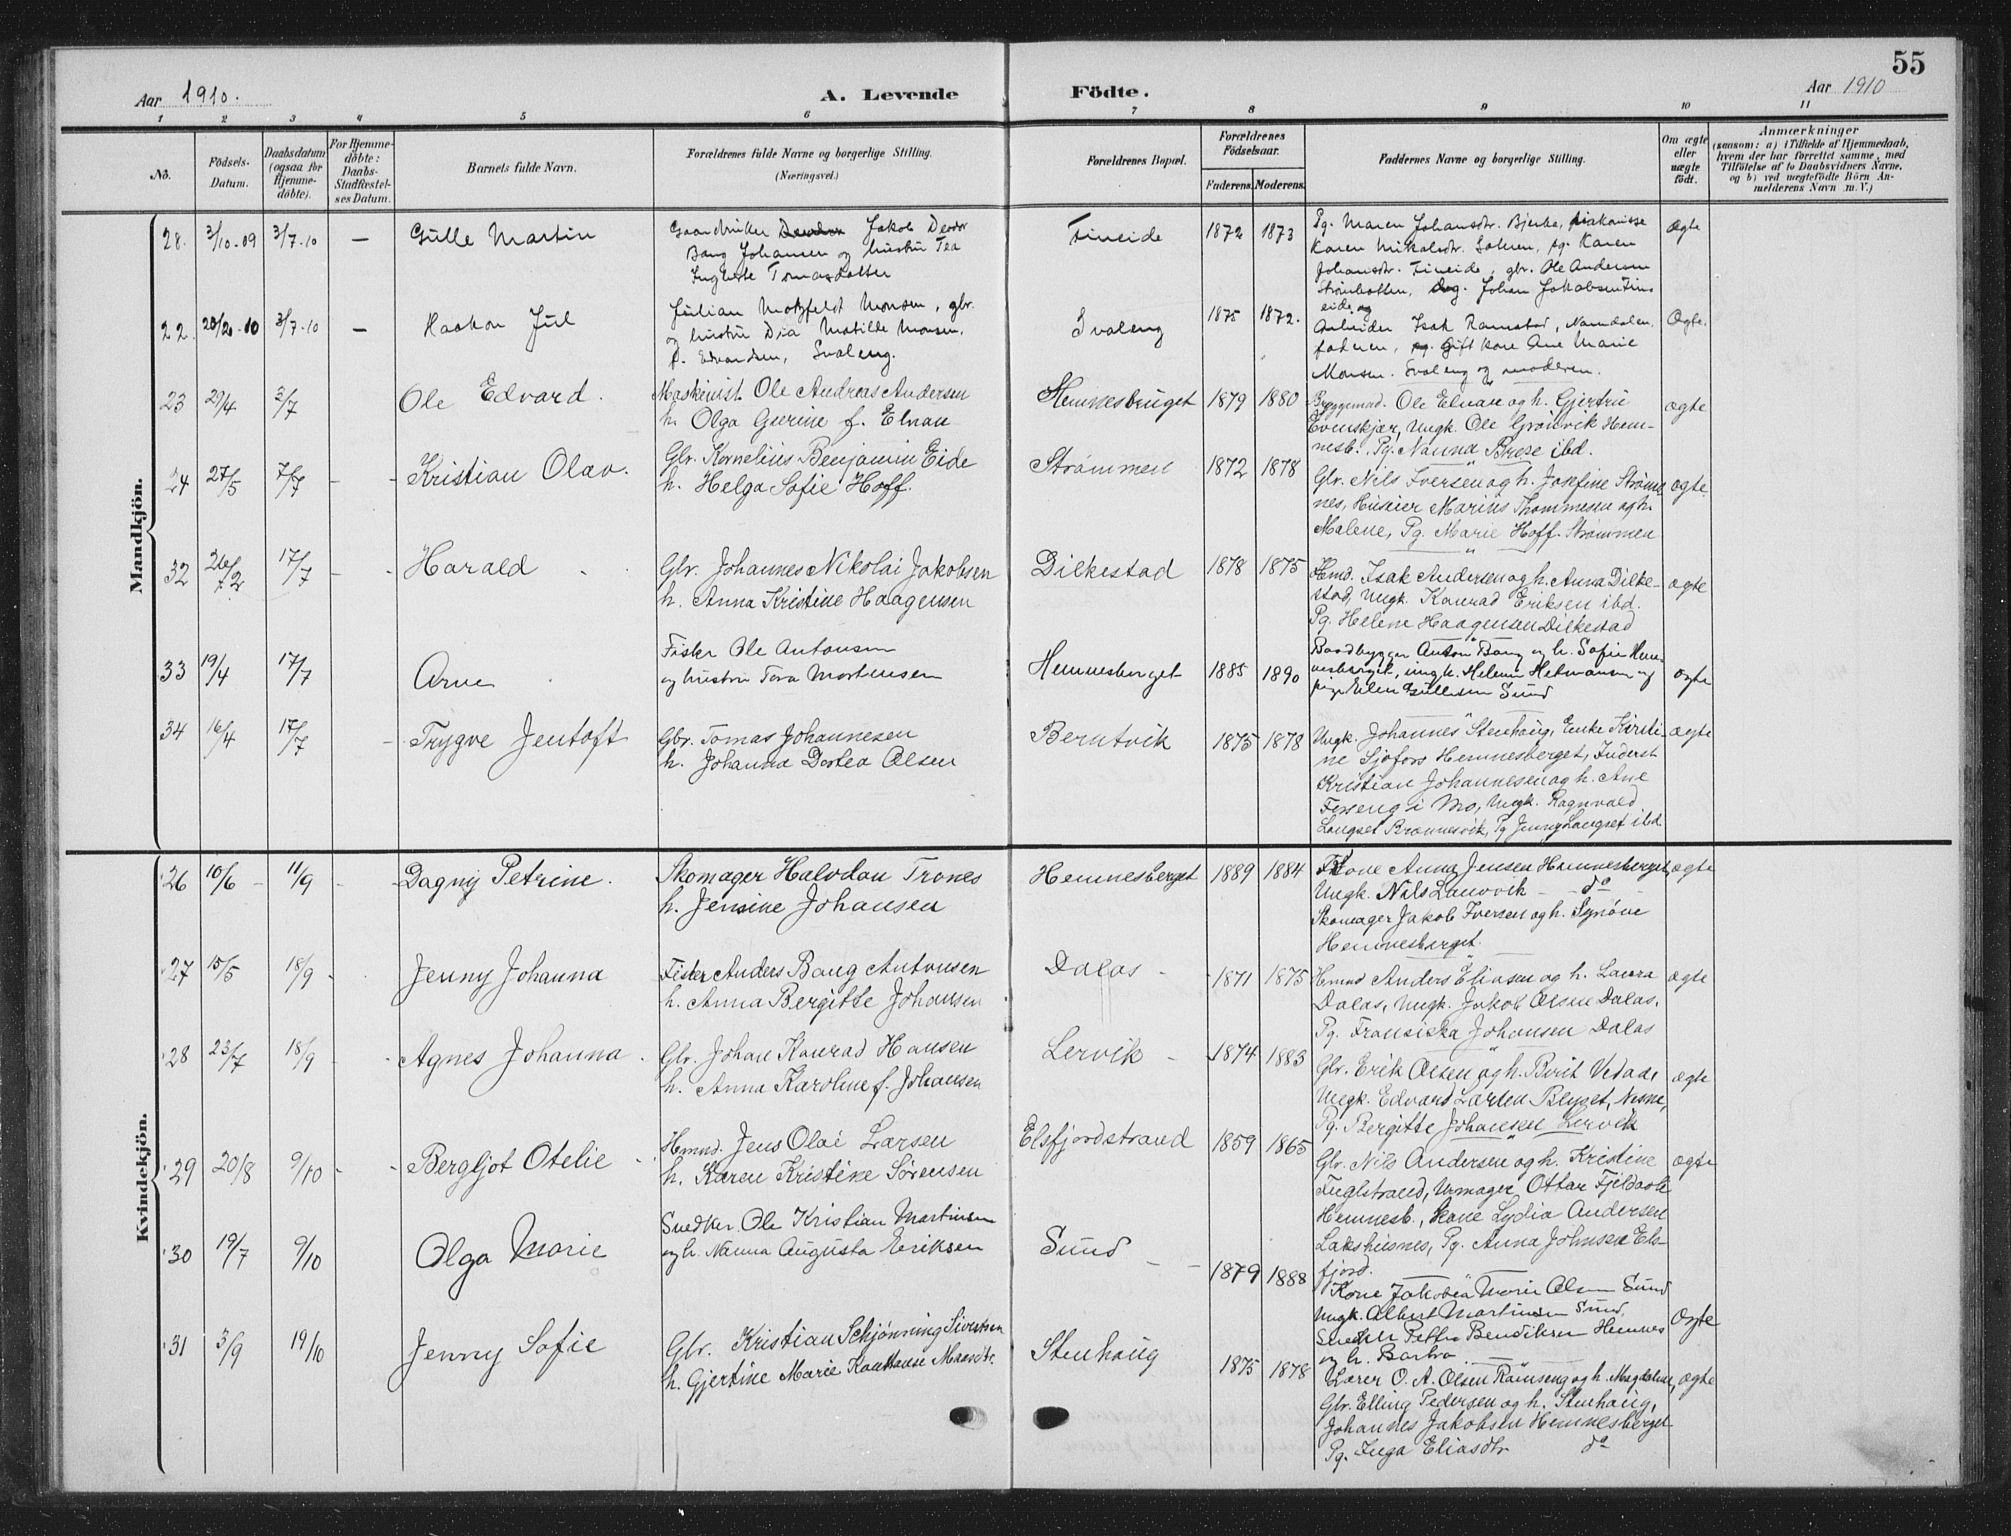 55
Aar 1910.
A. Levende
Födte.
Aar 1910
1 2 3 4 5 6 7 8 9 10 11
No.
Födsels-
Datum.
Daabsdatum
(ogsaa for
Hjemme-
döbte).
For Hjemme-
döbte:
Daabs-
Stadfæstel-
ses Datum.
Barnets fulde Navn.
Forældrenes fulde Navne og borgerlige Stilling.
(Næringsvei.)
Forældrenes Bopæl.
Forældrenes
Födselsaar.
Faderens. Moderens.
Faddernes Navne og borgerlige Stilling.
Om ægte
eller
uægte
födt.
Anmærkninger
(saasom: a) i Tilfælde af Hjemmedaab,
hvem der har forrettet samme, med
Tilföielse af to Daabsvidners Navne,
og b) ved uægtefödte Börn An-
melderens Navn m. V.)
Mandkjön.
28. 3/10-09 3/7-10 — Gulle Martin
Gaardbruker Jakob
Bang Johansen og hustru Tea
Ingberte Tomasdatter
Fineide 1872 1873
Pg. Maren Johansdr. Bjerka,
Karen Mikalsdr. pg. Karen
Johansdr. Fineide, gbr. Ole Andersen
Johan
Ægte
22. 28/2-10 3/7-10 — Haakon Jul
Julian Motzfeldt Monsen, gbr.
og hustru Dia Matilde Monsen,
f. Edvardsen, Svaleng.
Svaleng 1875 1872.
Arbeider Isak Ramstad, Namdalen,
faderen, Gift kone Ane Marie
Monsen. Svaleng og moderen.
Ægte.
23 29/4 3/7 Ole Edvard.
Maskinist Ole Andreas Andersen
h. Olga Gurine f. Elvan
Hemnesberget 1879 1880
Byggemed. Ole Elvan og h. Gjertru
Evenskjær, Ungk. Ole Grönvik Hem-
nesb., Pg. Nanna Brese ibd.
ægte
24 27/5 7/7 - - Kristian Olav.
Gbr. Kornelius Benjamin Eide
h. Helga Sofie Hoff.
Strömmen 1872 1878
Gbr. Nils Iversen og h. Josefine Ström-
nes, Huseier Marius Thommesen og h.
Malene, Pg. Marie Hoff Strömmen
ægte
32 26/2 17/7 - - Harald
Gbr. Johannes Nikolai Jakobsen
h. Anna Kristine Haagensen
Dilkestad 1878 1875
Hmd. Isak Andersen og h. Anna Dilke-
stad, Ungk. Konrad Eriksen ibd.
Pg. Helene Haagensen Dilkestad
ægte
33 19/4 17/7 Arne
Fisker Ole Antonsen
og hustru Tora Mortensen
Hemnesberget 1885 1890
Baadbygger Anton Bang og h. Sofie Hem-
nesberget, ungk. Helmer Hermansen og
pige Elen Gullesen Sund
ægte
34 16/4 17/7 - Trygve Jentoft
Gbr. Tomas Johannesen
h. Johanna Dortea Olsen
Berntvik 1875 1878
Ungk. Johannes Stenhaug, Enke Kirsti-
ne Sjøfors Hemnesberget, Inderst
Kristian Johannesen og h. Ane
i Mo, Ungk. Ragnvald
Langset Brannesvik, Pg Jenny Langset ibd.
ægte
Kvindekjön.
26 10/6 - 11/9 - - Dagny Petrine.
Skomager Halvdan Trones
h. Jensine Johansen
Hemnesberget 1889 1884
Kone Anna Jensen Hemnesberget,
Ungk. Nils Lauvvik - do -
Skomager Jakob Iversen og h. Synöve
Hemnesberget.
ægte
27 15/5 18/9 - Jenny Johanna
Fisker Anders Bang Antonsen
h. Anna Bergitte Johansen
Dalos - 1871 1875
Hmnd Anders Eliasen og h. Laura
Dalos, Ungk. Jakob Olsen Dalos.
Pg. Fransiska Johansen Dalos
ægte
28 23/7 18/9 - - Agnes Johanna.
Gbr. Johan Konrad Hansen
h. Anna Karoline f. Johansen
Lervik - 1874 1883
Gbr. Erik Olsen og h. Birit Vedaa,
Ungk. Edvard Larsen Nesne,
Pg. Bergitte Johansen Lervik
ægte
29 20/8 9/10 - - Bergljot Otelie -
Hmnd. Jens Olai Larsen
h. Karen Kristine Sørensen
Elsfjordstrand 1859 1865
Gbr. Nils Andersen og h. Kristine
Fuglstrand, Urmager Ottar Fjeldavli
Hemnesb., Kone Lydia Andersen
Lakshusnes, Pg. Anna Johnsen Els-
fjord.
ægte
30 19/7 9/10 Olga Marie
Snedker Ole Kristian Martinsen
og h. Nanna Augusta Eriksen
Sund - - 1879 1888
Kone Jakobea Marie Olsen Sund
Ungk. Albert Martinsen Sund
Snedker Petter Bendiksen Hemnes
og h. Barbra
ægte
31 3/9 19/10 Jenny Sofie
Gbr. Kristian Schjønning Sivertsen
h. Gjertine Marie
Stenhaug 1875 1878
Lærer O. A. Olsen Ramseng og h. Magdalene,
Gbr. Elling Pedersen og h. Stenhaug,
Johannes Jakobsen Hemnesberget
Pg. Inga Eliasdtr do
ægte